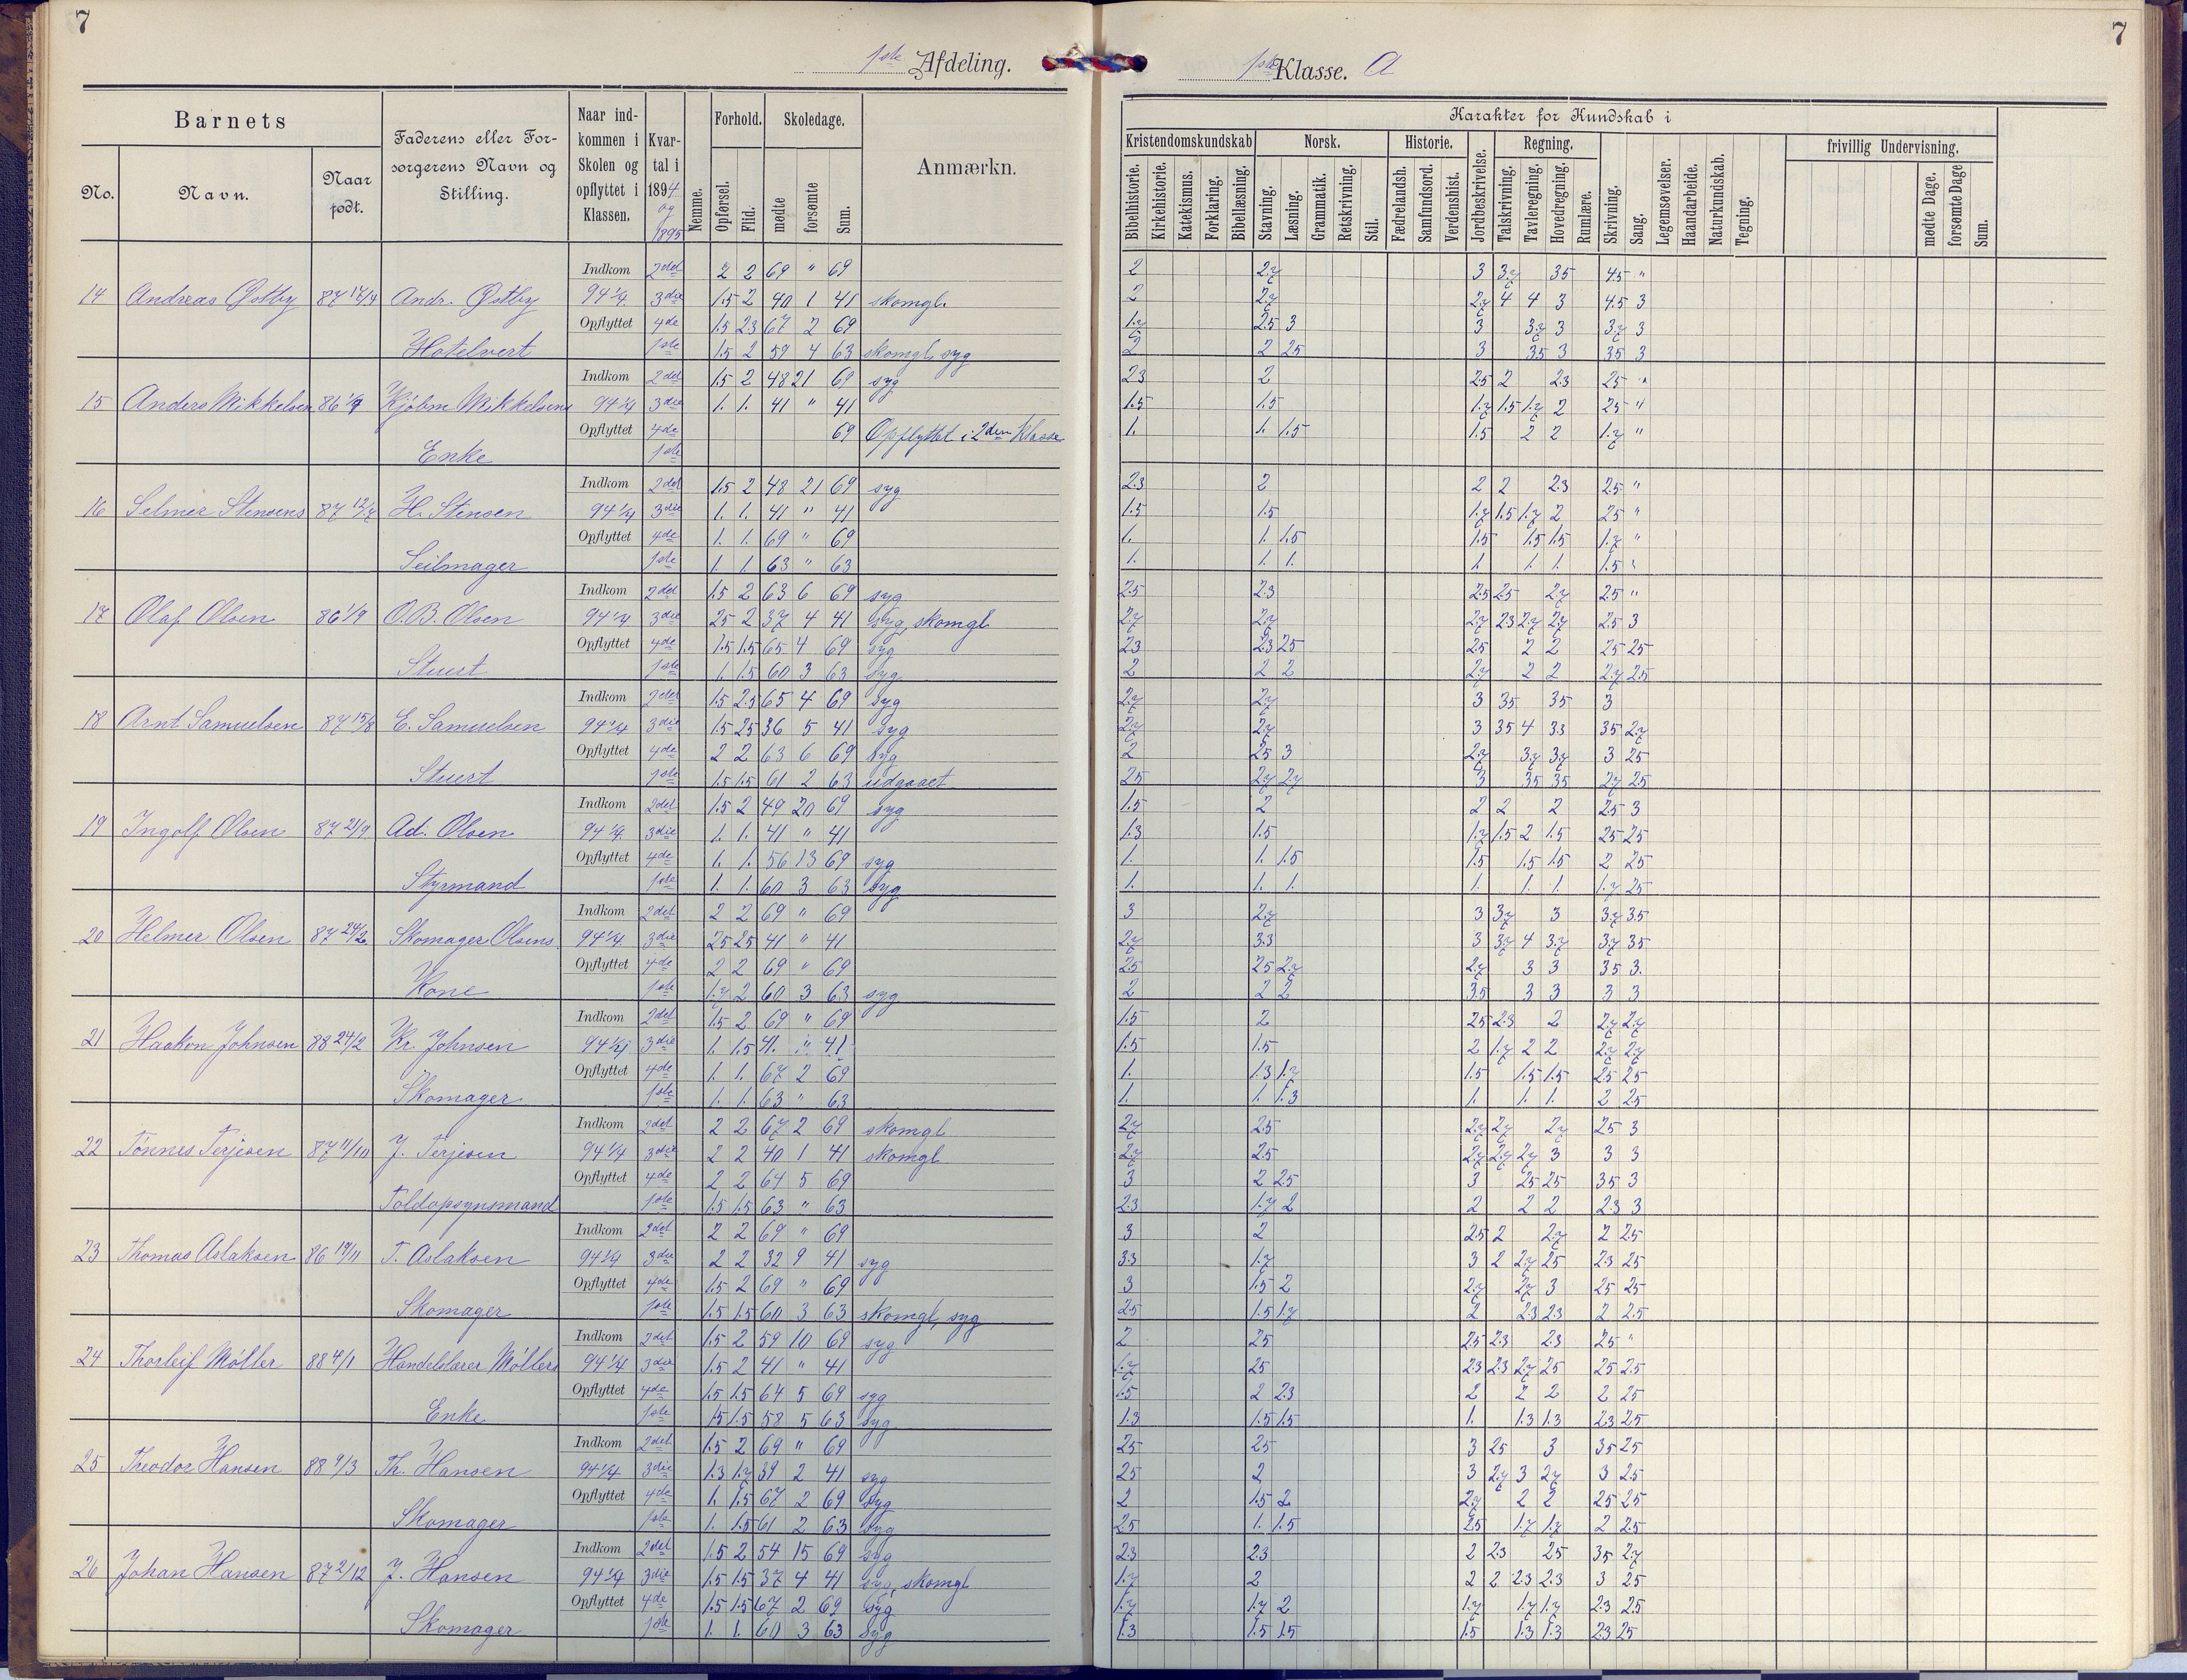 7
7
1ste Afdeling.
1ste Klasse. A
Barnets
Faderens eller Forsørgerens Navn og Stilling.
Naar indkommen i Skolen og opflyttet i Klassen.
Kvartal i 1894 og 1895
Nemme.
Forhold.
Skoledage.
Anmærkn.
Karakter for Kundskab i
No.
Navn.
Naar født.
Opførsel.
Flid.
mødte
forsømte
Sum.
Kristendomskundskab
Norsk.
Historie.
Jordbeskrivelse.
Regning.
frivillig Undervisning.
Bibelhistorie.
Kirkehistorie.
Katekismus.
Forklaring.
Bibellæsning.
Stavning.
Læsning.
Grammatik.
Retskrivning.
Stil.
Fædrelandsh.
Samfundsord.
Verdenshist.
Talskrivning.
Tavleregning.
Hovedregning.
Rumlære.
Skrivning.
Sang.
Legemsøvelser.
Haandarbeide.
Naturkundskab.
Tegning.
mødte Dage.
forsømte Dage
Sum.
Indkom 2det 2 2 69 " 69
14 Andreas Østby Andr. Østby 94 1/4 3die 1.5 2 40 1 41 skomgl.
Opflyttet 4de 1.5 23 67 2 69
Hotelvert 1ste 1.5 2 59 4 63 skomgl, syg
Indkom 2det 1.5 2 48 21 69 syg
15 Anders Mikkelsen Kjøbm Mikkelsens 94 1/4 3die 1. 1. 41 " 41
Opflyttet 4de 69 Opflyttet i 2den Klasse
Enke 1ste
Indkom 2det 1.5 2 48 21 69 syg
16 Selmer Stensens H. Stensen 94 1/4 3die 1. 1. 41 " 41
Opflyttet 4de 1. 1. 69 " 69
Seilmager 1ste 1. 1. 63 " 63
Indkom 2det 1.5 2 63 6 69 syg
17 Olaf Olsen 86 1/9 O.B. Olsen 94 1/4 3die 25 2 37 4 41 syg, skomgl
Opflyttet 4de 1.5 1.5 65 4 69 syg
Stuert 1ste 1. 1.5 60 3 63 syg
Indkom 2det 1.5 2.5 65 4 69 syg
18 Arnt Samuelsen 87 15/8 E. Samuelsen 94 1/4 3die 1.5 25 36 5 41 syg
Opflyttet 4de 2 2 63 6 69 syg
Stuert 1ste 1.5 1.5 61 2 63 udgaaet
Indkom 2det 1.5 2 49 20 69 syg
19 Ingolf Olsen 87 21/9 Ad. Olsen 94 1/4 3die 1. 1. 41 " 41
Opflyttet 4de 1. 1. 56 13 69 syg
Styrmand 1ste 1. 1. 60 3 63 syg
Indkom 2det 2 2 69 " 69
20 Helmer Olsen 87 24/2 Skomager Olsens 94 1/4 3die 25 25 41 " 41
Opflyttet 4de 2 2 69 " 69
Kone 1ste 1.7 2 60 3 63 syg
Indkom 2det 1.5 2 69 " 69
21 Haakon Johnsen 88 24/2 Kr. Johnsen 94 1/4 3die 1. 1.5 41. " 41
Opflyttet 4de 1. 1. 67 2 69
Skomager 1ste 1. 1. 63 " 63
Indkom 2det 2 2 67 2 69 skomgl
22 Tønnes Terjesen 87 11/10 J. Terjesen 94 1/4 3die 2 2 40 1 41 skomgl
Opflyttet 4de 2 2 64 5 69
Toldopsynsmand 1ste 1.5 1.5 63 " 63
Indkom 2det 2 2 69 " 69
23 Thomas Aslaksen 86 19/11 T. Aslaksen 94 1/4 3die 2 2 32 9 41 syg
Opflyttet 4de 1.5 2 69 " 69
Skomager 1ste 1.5 1.5 60 3 63 skomgl, syg
Indkom 2det 1.5 2 59 10 69 syg
24 Thorleif Møller 88 4/1 Handelslærer Møllers 94 1/4 3die 1.5 2 41 " 41
Opflyttet 4de 1.5 1.5 64 5 69 syg
Enke 1ste 1.5 1.5 58 5 63 syg
Indkom 2det 1.5 2 69 " 69
25 Theodor Hansen 88 9/3 Th. Hansen 94 1/4 3die 1.3 1.7 39 2 41 syg
Opflyttet 4de 1. 1.5 67 2 69 syg
Skomager 1ste 1. 1.5 61 2 63 syg
Indkom 2det 1.5 2 54 15 69 syg
26 Johan Hansen 87 2/12 J. Hansen 94 1/4 3die 1.5 1.5 37 4 41 syg, skomgl
Opflyttet 4de 1.5 1.5 67 2 69 syg
Skomager 1ste 1. 1. 60 3 63 syg
2 2.7 3 3.7 35 45 "
2 2.7 2.7 4 4 3 4.5 3
1.7 2.5 3 3 3.7 3 3.7 3
2 2 25 3 35 3 35 3
23 2 25 2 23 25 "
1.5 1.5 1.7 1.5 1.7 2 25 "
1. 1. 1.5 1.5 2 2 1.7 "
2.3 2 2 2 2.3 2.5 "
1.5 1.5 1.7 1.5 1.7 2 25 "
1. 1. 1.5 1.5 1.5 1.5 1.7 "
1. 1. 1. 1. 1. 1. 1.5 "
2.5 2.3 25 25 2.7 25 "
2.7 2.7 2.7 23 2.7 2.7 25 3
23 23 25 25 2 2 25 25
2 2 2 2.7 2 2 2.7 2.5
2.7 2.7 3 35 35 3
2.7 2.7 3 35 4 33 35 2.7
2 25 3 2.7 3.7 3.7 3 25
25 2.7 2.7 3 35 35 2.7 25
1.5 2 2 2 2 25 3
1.3 1.5 1.7 1.5 2 1.5 25 25
1. 1. 1.5 1.5 1.5 1.5 2 25
1. 1. 1. 1. 1. 1. 1.7 25
3 2.7 3 3.7 3 3.7 3.5
2.7 3.3 3 3.7 4 3.7 3.7 35
25 25 2.7 2.7 3 3 35 3.
2 2 2 3.5 3 3 3 3
1.5 2 25 2.3 2 2.7 2.7
1.5 1.5 2 1.7 2 2 2.7 2.7
1. 1.3 1.7 1.5 1.5 1.5 25 25
1. 1. 1.3 1. 1. 1. 2 2.5
2.7 2.5 2.7 2.7 2.7 25 3
2.7 2.5 2.7 2.7 2.7 3 3 3
3 2 25 3 25 25 35 3
2.3 1.7 2 2 2 2 2.3 3
3 2 2.5 2 2.7 2 2.5
33 1.7 3 2 2.7 25 23 25
3 1.5 2 2.7 2.7 3 25 25
25 1.5 1.7 2 23 23 2 2.5
2 25 2.5 2.3 2.3 25 "
1.7 25 2.3 2.3 2.7 25 25 2.5
1.5 2 23 2 2 2 2 25
1.3 1.5 1.5 1. 1.3 1.3 23 25
25 25 3 25 3 35 25
25 2 3 2.7 3 2.7 3 25
2 1.5 2 2.7 2 2 25 25
25 1. 1.5 25 1.7 1.7 2 2.5
23 23 2 23 25 35 2.7
1.7 2 2 2 23 2.3 3 25
1.7 1.7 2 1.7 1.7 1.7 2.3 2.5
1.3 1.5 1.5 1.5 1.3 1.3 23 25